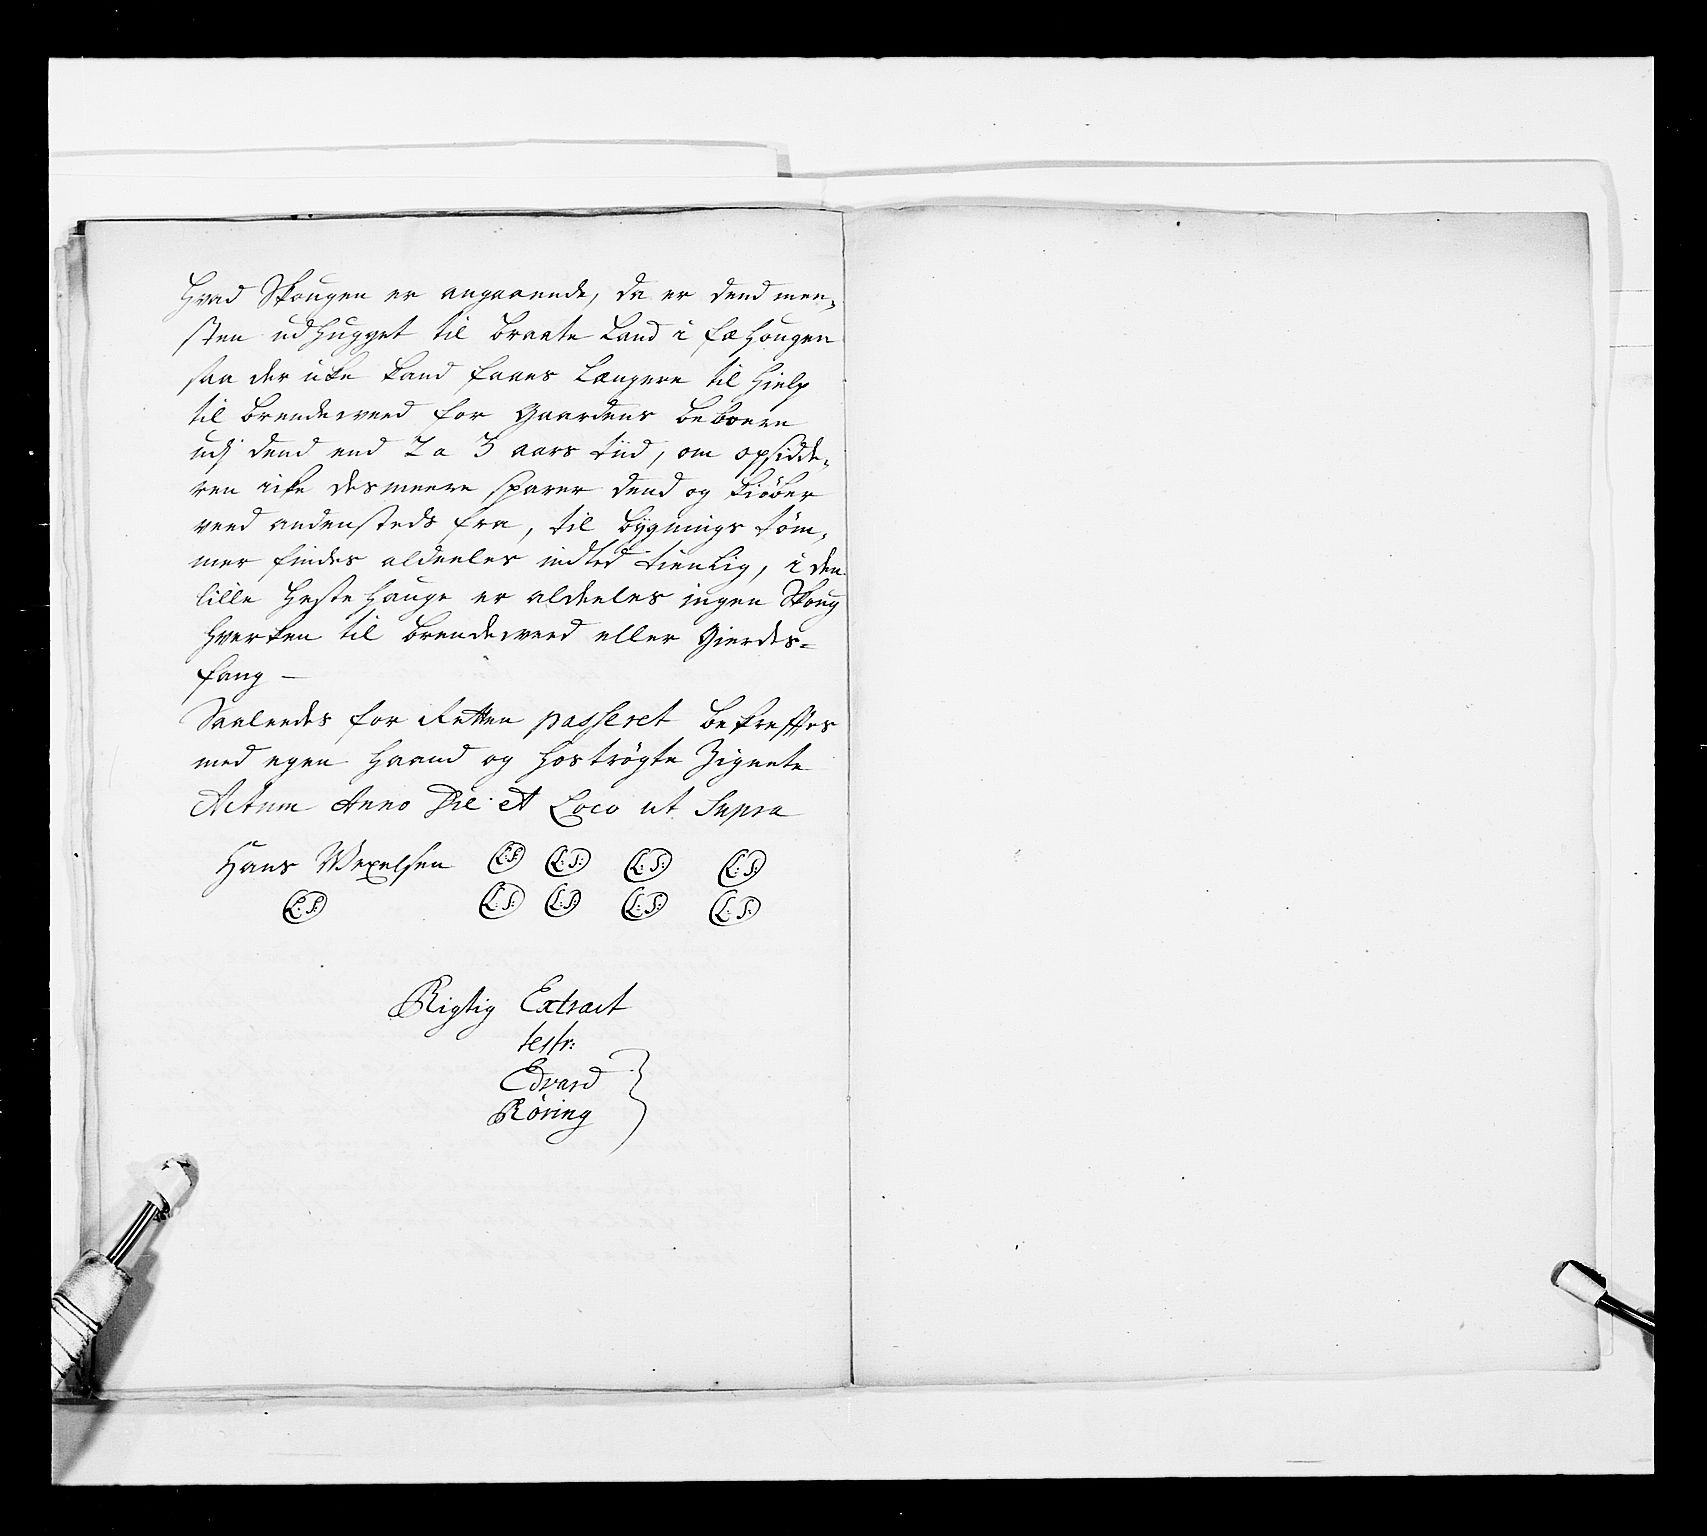 Hvad Skougen er angaaende, da er dend men-
sten udhugget til braate Land i fæ Hougen
saa der icke kand faaes Længere til Hielp
til brendeweed for Gaardens beboere
udj dend end 2 a 3 aars tiid, om opsidde-
ren icke desmeere sparer dend og kiøber
veed andensteds fra, til bygnings tøm-
mer findes aldeeles indted tienlig, i den
lille Heste Hauge er aldeeles ingen Skoug
Hverken til brendeweed eller Gierdes=
fang —
Saaleedes for Retten passeret bekreftes
med egen Haand og Hostrøgte Zignete
Actum Anno Die et Loco ut Supra
Hans Wexelsen L:S: L:S: L:S: L:S:
L:S: L:S: L:S: L:S: L:S:
Rigtig Extract
test:
Edvard
Röring